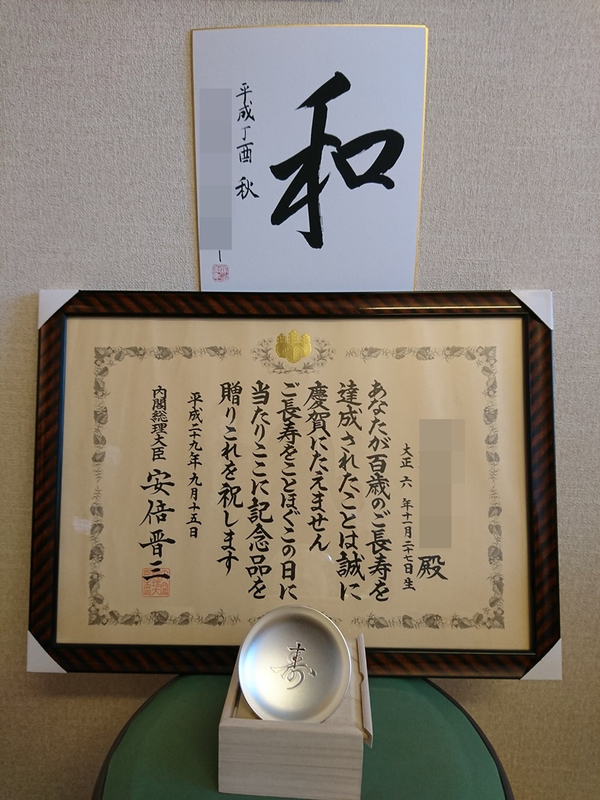 和
平成丁酉 秋
殿
大正 六 年十一月二十七日生
あなたが百歳のご長寿を
達成されたことは誠に
慶賀にたえません
ご長寿をことほぐこの日に
当たりここに記念品を
贈りこれを祝します
平成二十九年 九月十五日
内閣総理大臣 安倍晋三
寿